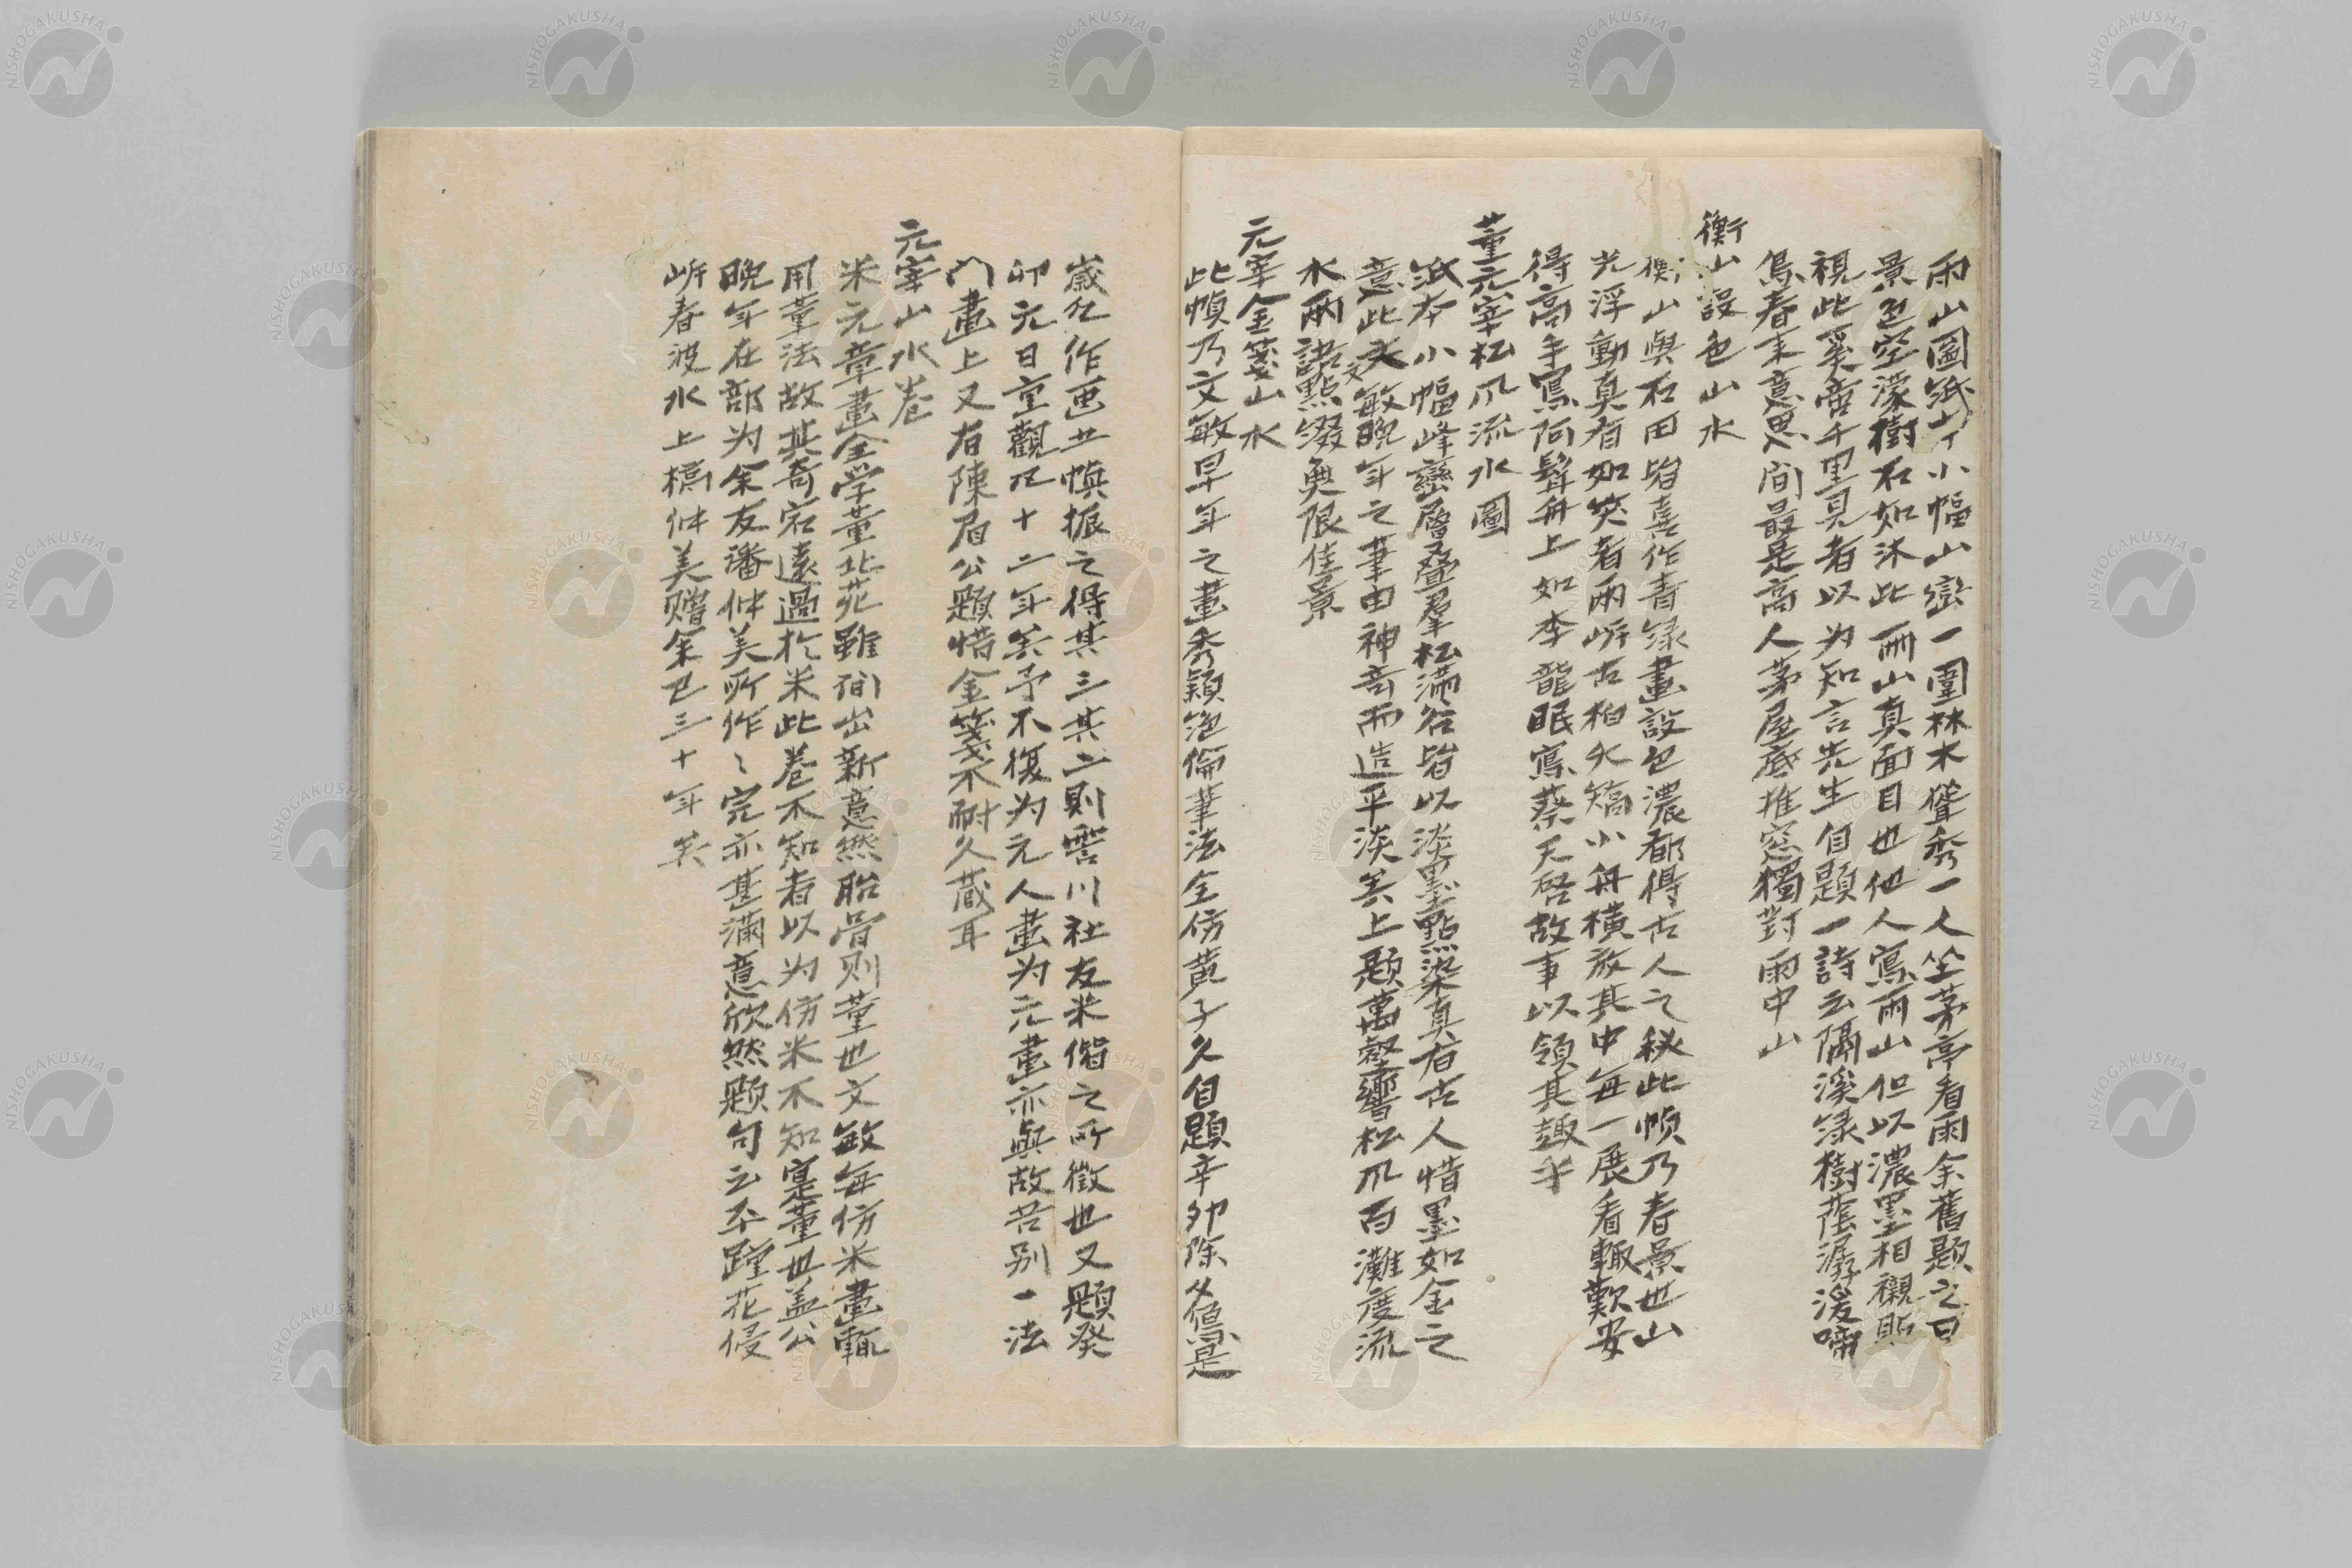 雨山圖紙本小幅山巒一圍林木聳秀一人坐茅亭看雨余舊題之曰
景色空濛樹石如沐此雨山真面目也他人寫雨山但以濃墨相襯貼
視此奚啻千里見者以为知言先生自題一詩云隔溪綠樹蔭潺湲啼
鳥春来意思間最是高人茅屋底推窓獨對雨中山
衡山設色山水
衡山與石田皆喜作青綠畫設色濃郁得古人之秘此幀乃春景也山
光浮動真有如笑者两岍古柏大矯小舟橫放其中每一展看輙歎安
得高手寫阿髯舟上如李龍眠寫蔡天啓故事以領其趣乎
董元宰松风流水圖
紙本小幅峰巒層叠羣松满谷皆以淡墨點染真有古人惜墨如金之
意此文敏晚年之筆由神奇而造平淡矣上题萬壑響松风百灘度流
水兩語點綴無限佳景
元宰金箋山水
此幀乃文敏早年之畫秀穎絶倫筆法全仿黄子久自題辛卯除夕憶是
歲凢作画廿幀振之得其三其二則雲川社友米借之所徵也又题癸
卯元日重觀凡十二年矣予不復为元人畫为元畫亦無故吾别一法
门畫上又有陳眉公題惜金箋不耐久藏耳
元宰山水卷
米元章畫全学董北苑雖间出新意然胎骨则董也文敏每仿米畫輒
用董法故其奇宕遠過於米此卷不知者以为仿米不知寔董也盖公
晚年在部为余友潘仲美所作〻完亦甚滿意欣然题句云不蹬花侵
岍春波水上橋仲美赠余已三十年矣